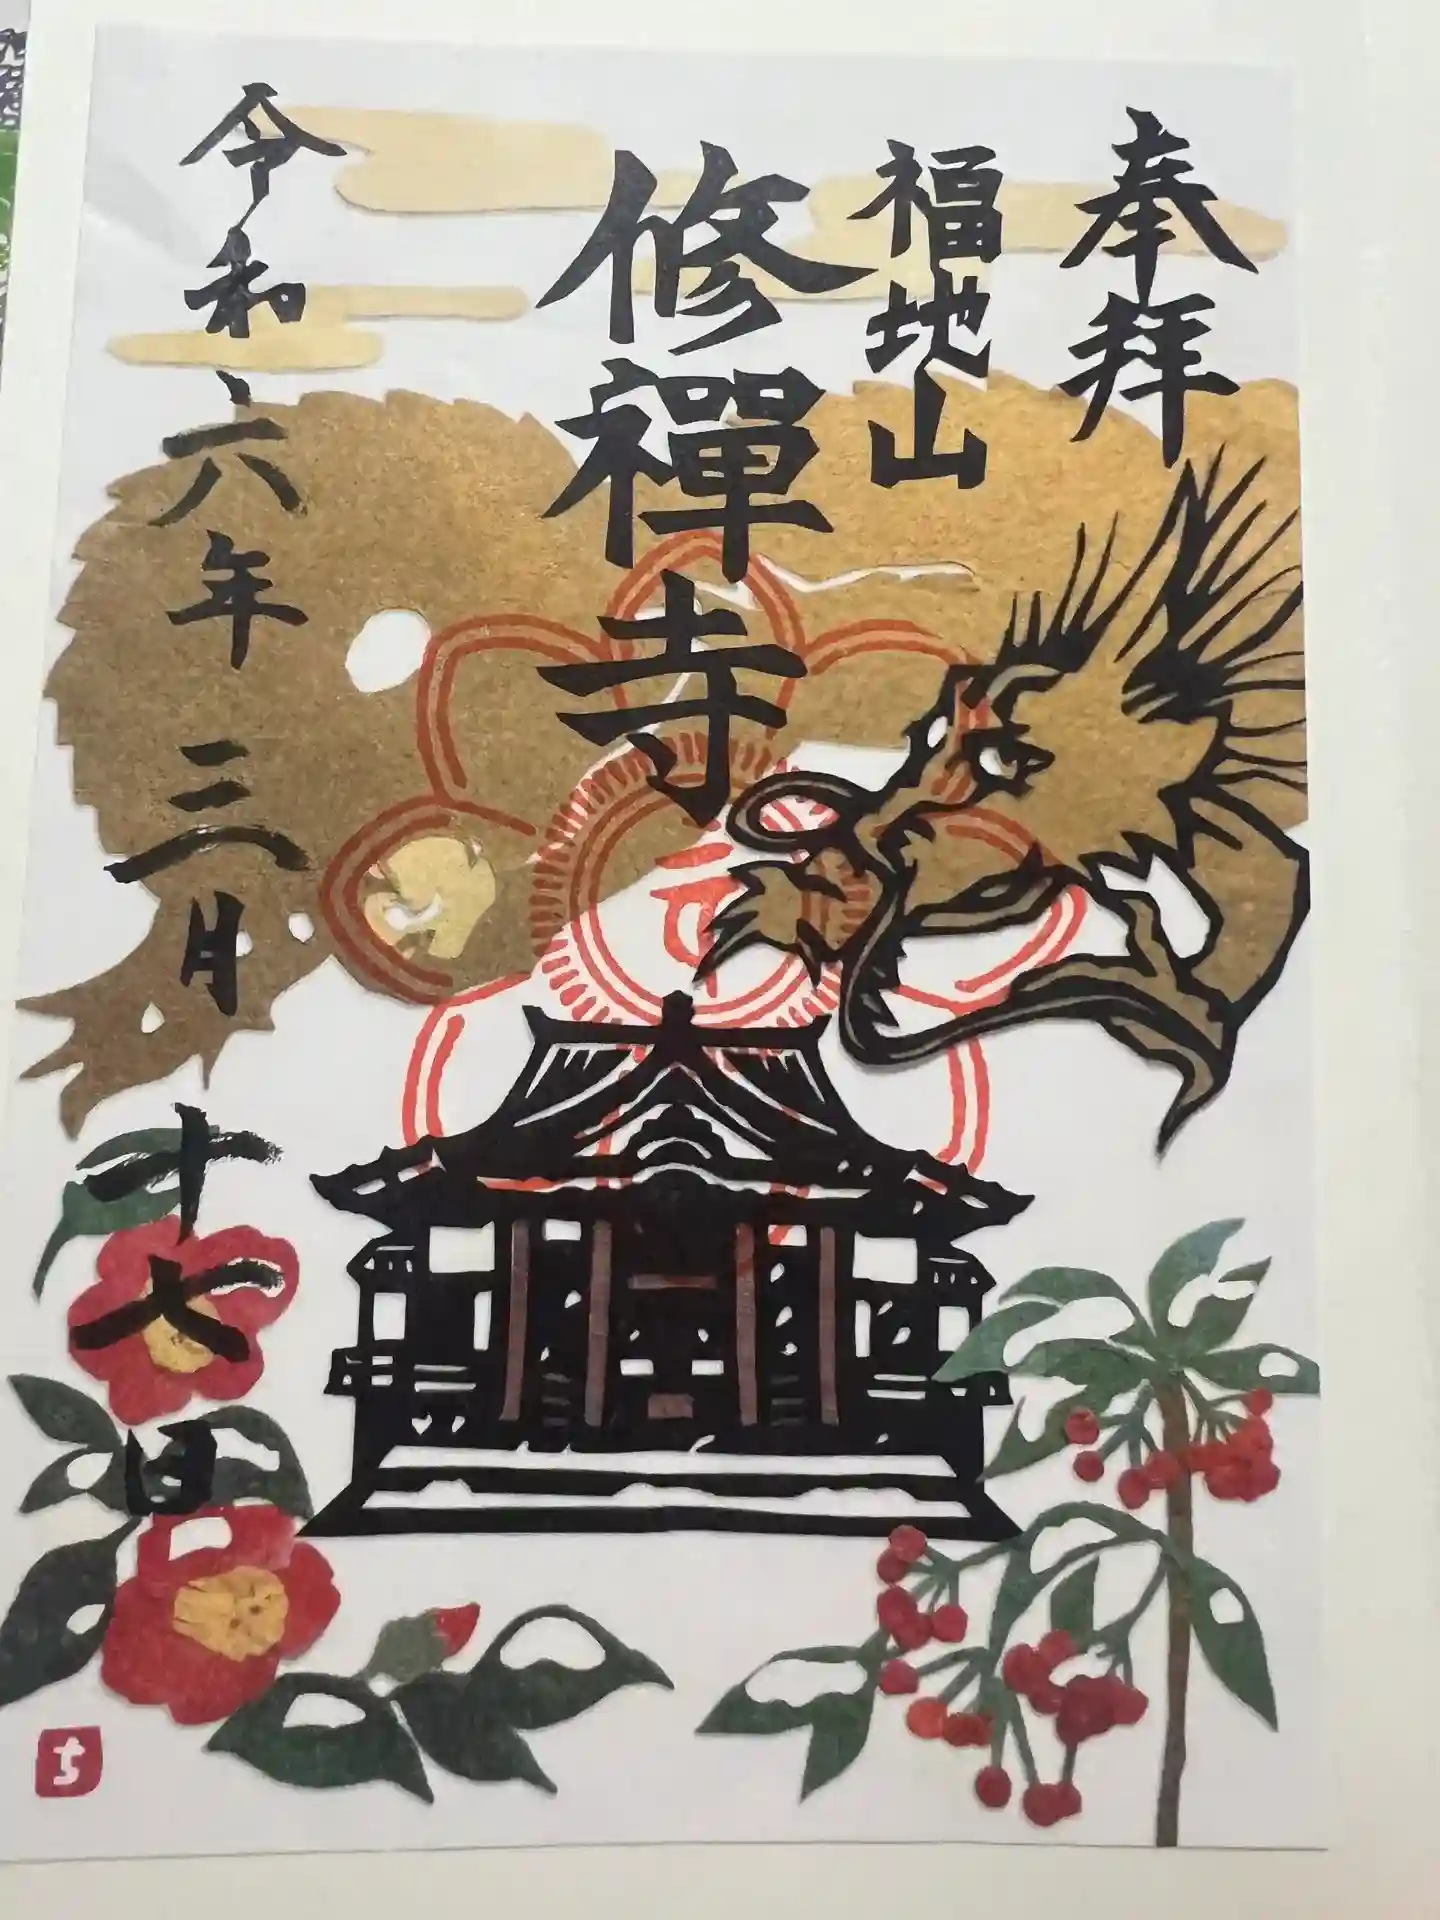 奉拜
福地山
修禪寺
令和六年三月十七日
ち